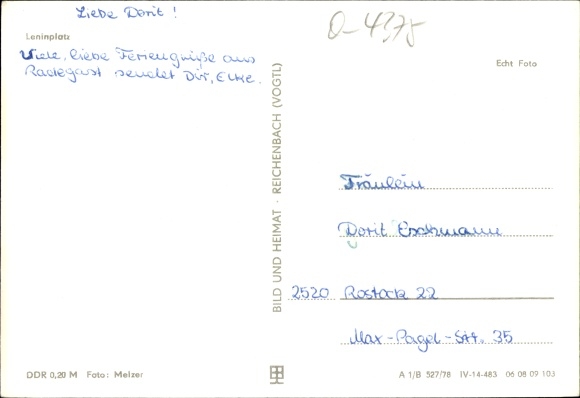 Liebe Dorit !
O-4375
Leninplatz
Viele, liebe Feriengrüße aus
Radegast sendet Dir, Elke.
Echt Foto
BILD UND HEIMAT · REICHENBACH (VOGTL)
Fräulein
Dorit Eschmann
2520 Rostock 22
Max-Pagel-Str. 35
DDR 0,20 M Foto: Melzer
A 1/B 527/78 IV-14-483 06 08 09 103